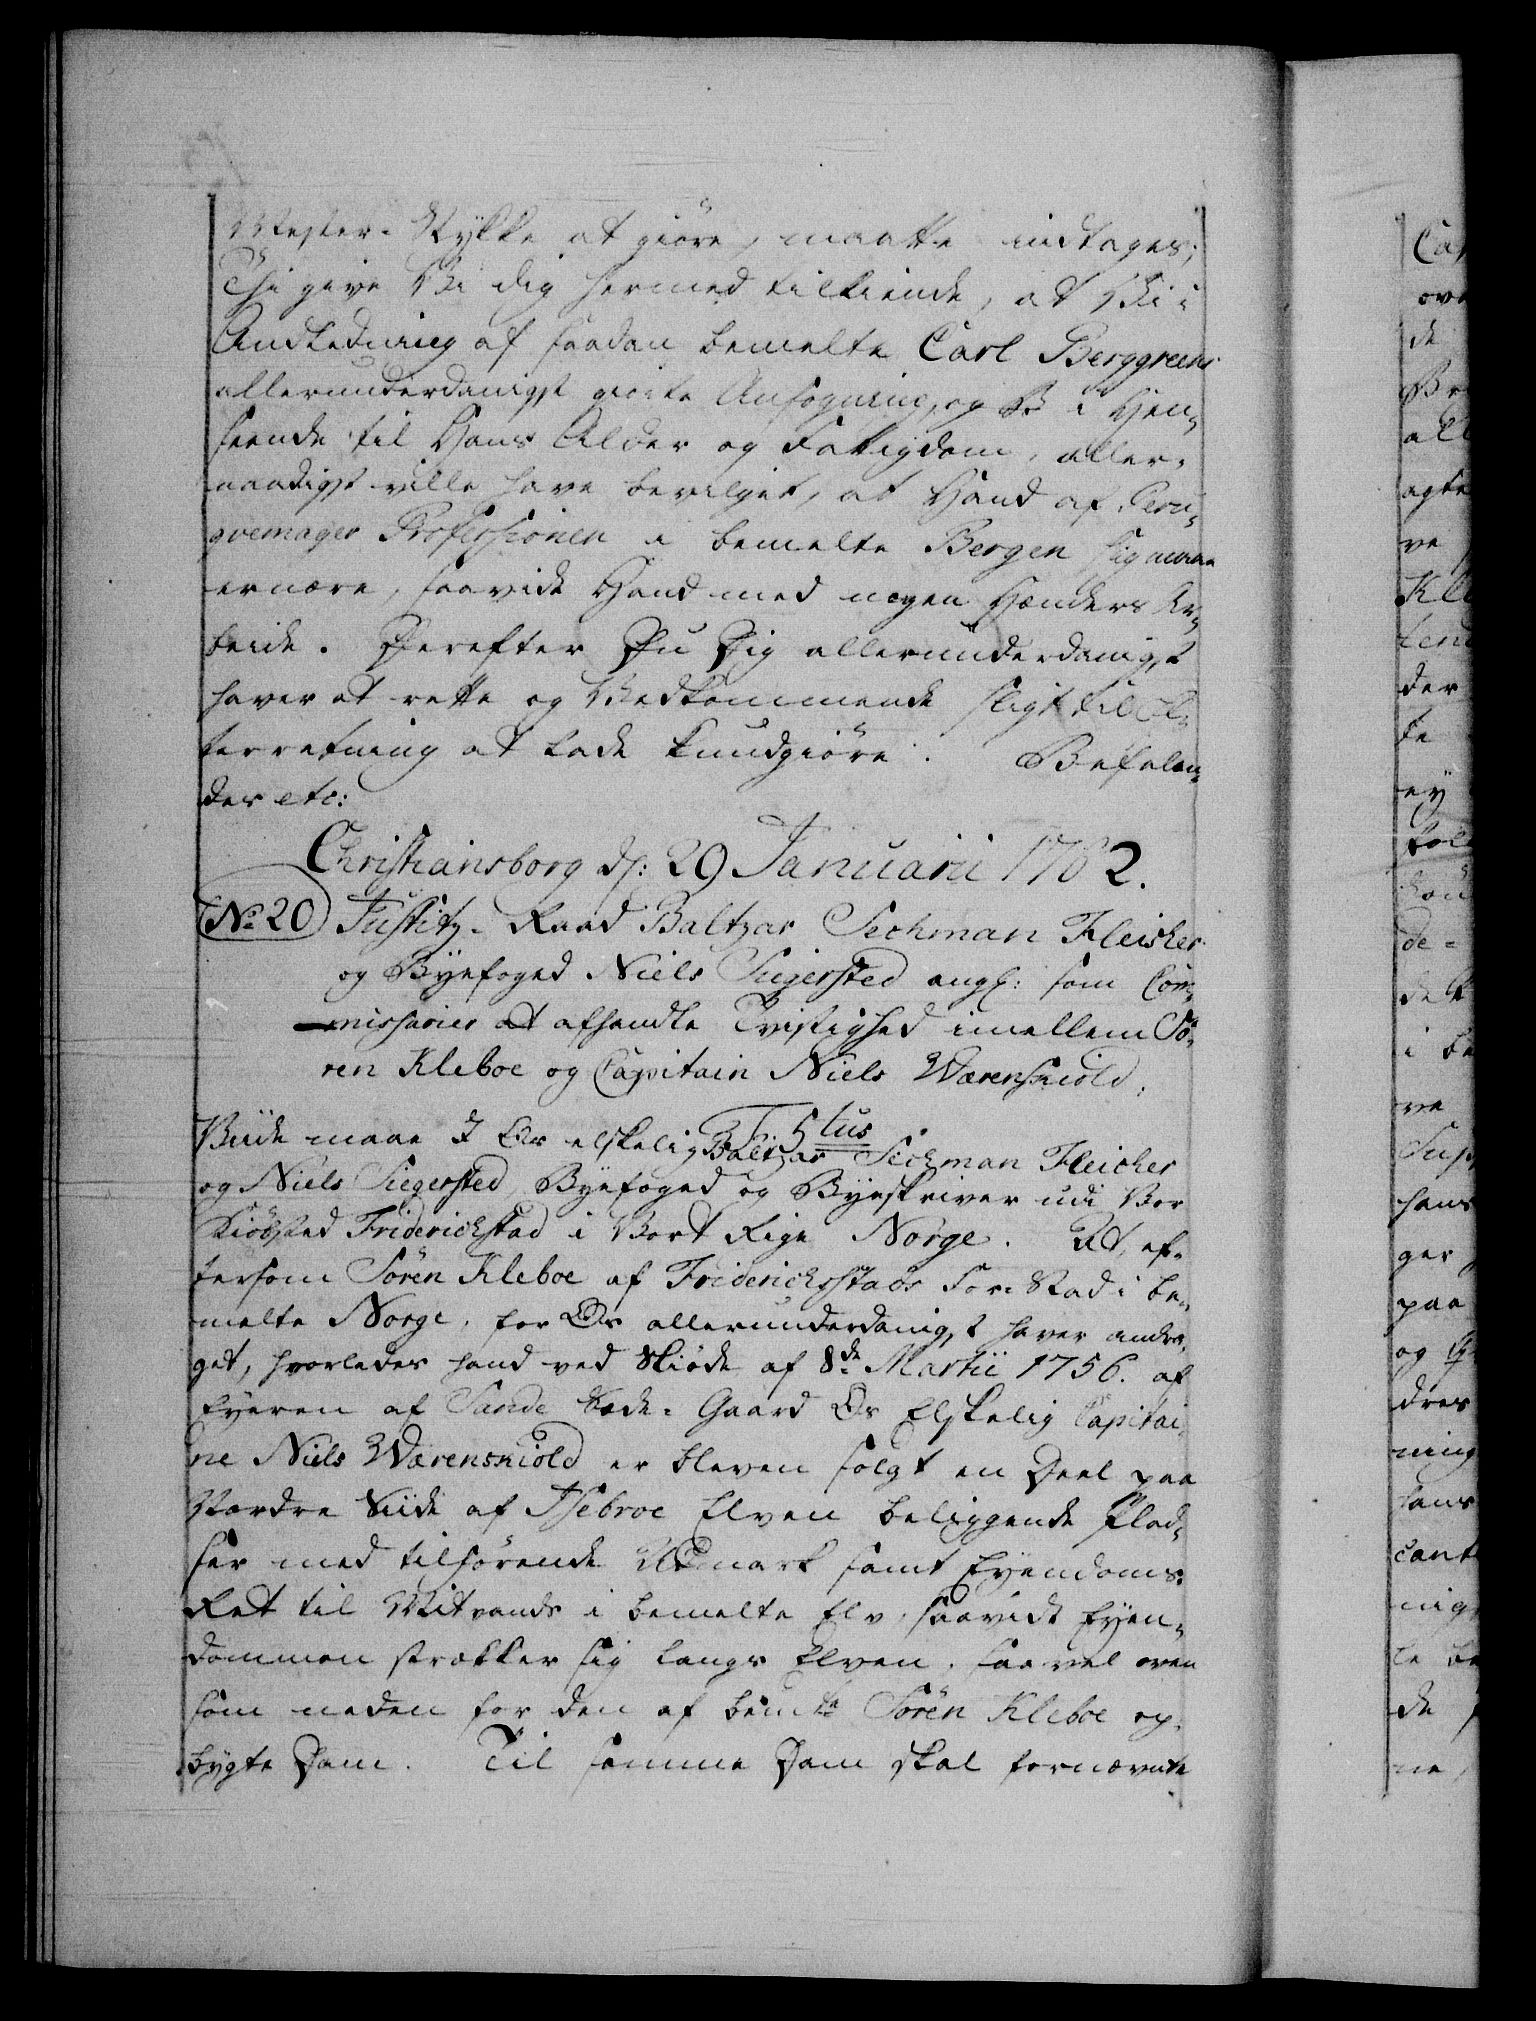 Mester-Stykke at giöre, maatte indtages;
Thi give Vi dig hermed tilkiende, at Vi i
Andledning af saadan bemelte Carl Berggreens
allerunderdanigst giorte Ansögning, og i Hen-
seende til Hans Alder og Fattigdom, aller-
naadigst ville have bevilget, at Hand af Peru-
qvemager Professionen i bemelte Bergen sig maae
ernære, saavidt Hand med egen Hænders Ar-
beide. Derefter Du Dig allerunderdanigst
haver at rette og Vedkommende sligt til Ef-
terretning at lade kundgiöre. Befalen-
des etc:
Christiansborg d: 29 Januarii 1762.
No 20 Justitz-Raad Baltzar Sechman Fleischer
og Byefoged Niels Siigersted angl: som Com-
missarier at afhandle Tvistighed imellem Sö-
ren Kleboe og Capitain Niels Wærenskiold.
Tus
Viide maae I Os elskelig Baltzar Sechman Fleicher
og Niels Siegersted, Byefoged og Byeskriver udi Vor
Kiöbsted Friderichstad i Vort Rige Norge. At, ef-
tersom Sören Kleboe af Friderichsstads For-Stad i be-
melte Norge, for Os allerunderdanigst haver andra-
get, hvorledes hand ved Skiöde af 8de Martii 1756. af
Eyeren af Sande Sæde-Gaard Os Elskelig Capitai-
ne Niels Wærenskiold er bleven solgt en Deel paa
Nordre Siide af Isebroe Elven beliggende Plad-
ser med tilhörende Udmark samt Eyendoms-
Ret til Mitvands i bemelte Elv, saavidt Eyen-
dommen strekker sig langs Elven, saavel oven
som neden for den af bemte Sören Kleboe op-
bygte Dam. Til samme Dam skal fornævnte